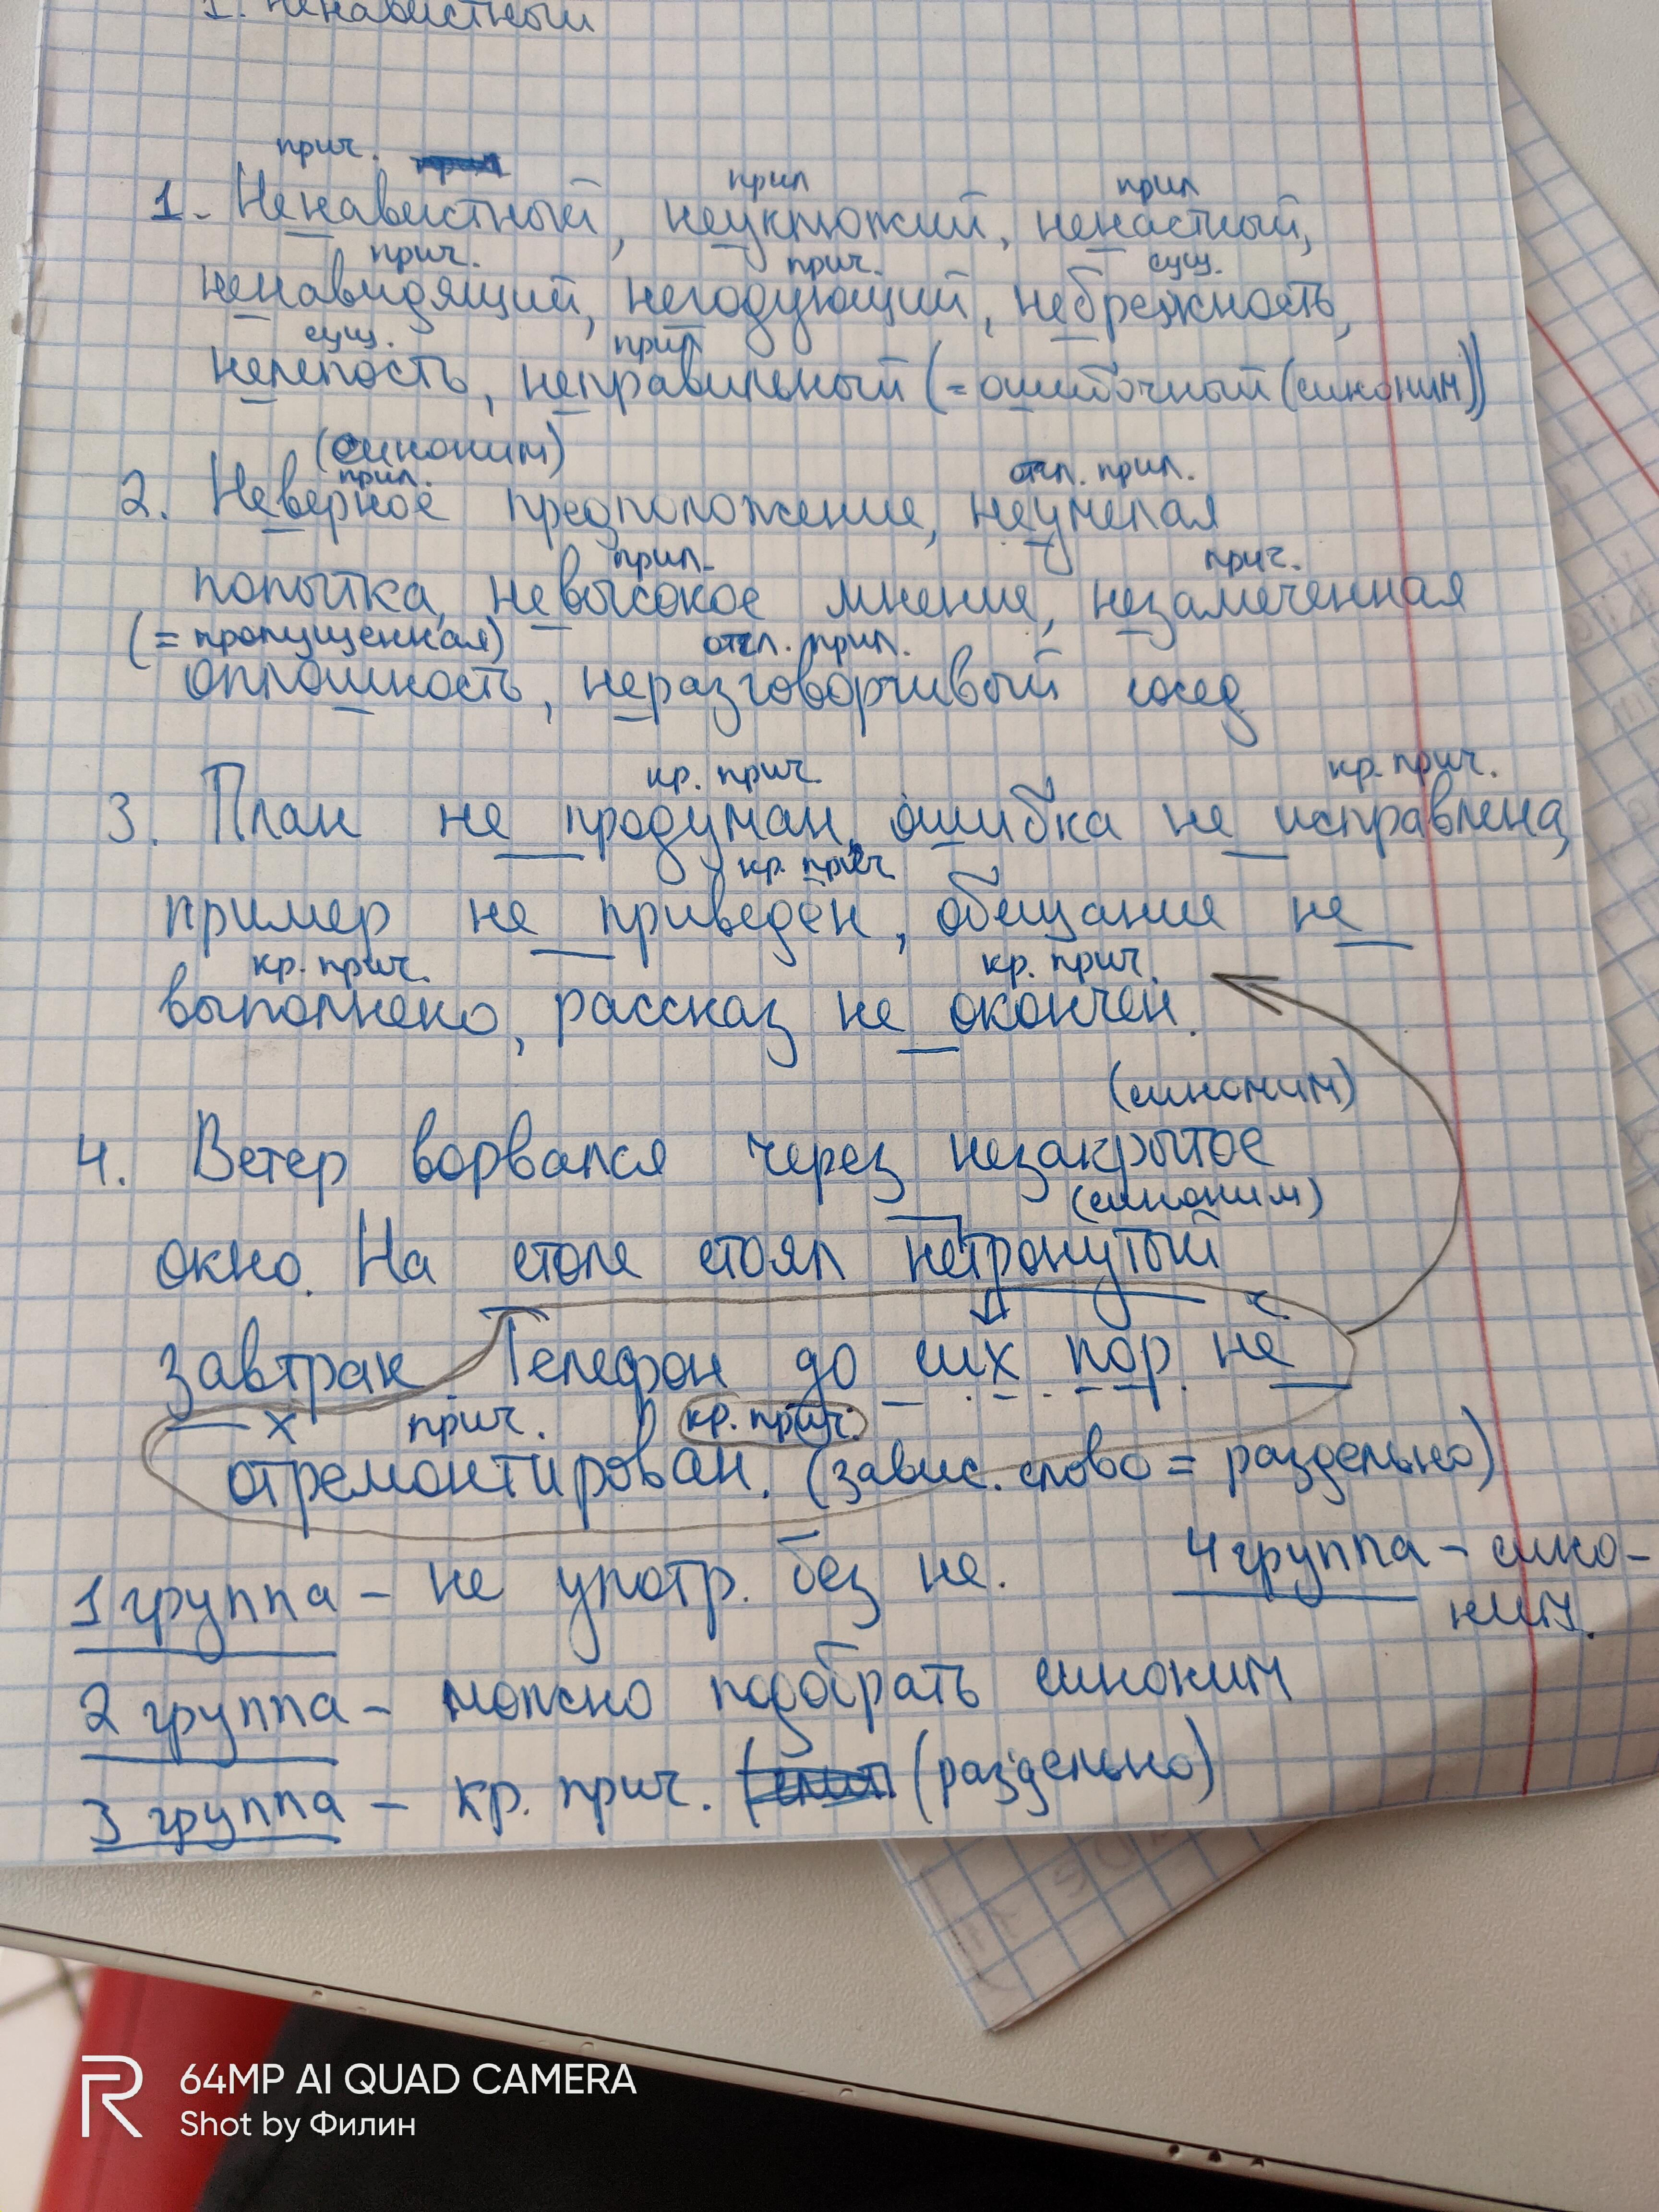 1. Ненавистный
прич. прил прил
1. Ненавистный, неуклюжий, ненастный,
прич. прич. сущ.
ненавидящий, негодующий, небрежность,
сущ. прил
нелепость, неправильный (= ошибочный (синоним))
(синоним)
прил. отгл. прил.
2. Неверное предположение, неумелая
прил. прич.
попытка, невысокое мнение, незамеченная
(= пропущенная) отгл. прил.
оплошность, неразговорчивый сосед
кр. прич. кр. прич.
3. План не продуман, ошибка не исправлена,
кр. прич
пример не приведён, обещание не
кр. прич. кр. прич.
выполнено, рассказ не окончен.
(синоним)
4. Ветер ворвался через незакрытое
(синоним)
окно. На столе стоял нетронутый
завтрак. Телефон до сих пор не
х прич. кр. прич.
отремонтирован. (завис. слово = раздельно)
1 группа - не употр. без не. 4 группа - сино-
ним.
2 группа - можно подобрать синоним
3 группа - кр. прич. (раздельно)
64MP AI QUAD CAMERA
Shot by Филин